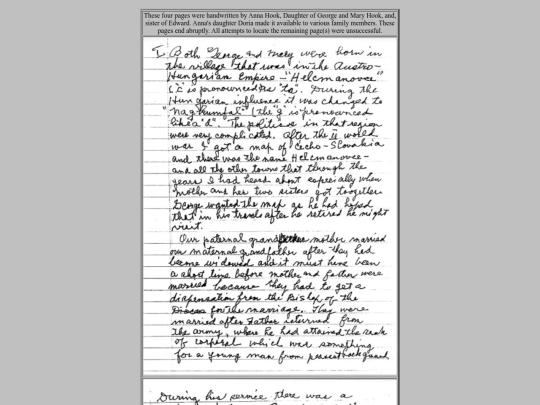 These four pages were handwritten by Anna Hook, Daughter of George and Mary Hook, and,
sister of Edward. Anna's daughter Doria made it available to various family members. These
pages end abruptly. All attempts to locate the remaining page(s) were unsuccessful.
I. Both George and Mary were born in
the village that was in the Austro-
Hungarian Empire - "Helcmanovce"
("c" is pronounced as "ts". During the
Hungarian influence it was changed to
"Nag Kumfal" (the "g" is pronounced
like a "d". The politics in that region
were very complicated. After the II world
war I got a map of Czecho-Slovakia
and there was the name Helcmanovce -
and all the other towns that through the
years I had heard about especially when
Mother and her two sisters got together.
George wanted the map as he had hoped
that in his travels after he retired he might
visit.
Our paternal grand mother married
our maternal grandfather after they had
become widowed and it must have been
a short time before mother and father were
married because they had to get a
dispensation from the Bishop of the
for the marriage. They were
married after Father returned from
the army, where he had attained the rank
of corporal which was something
for a young man from peasant background
During his service there was a